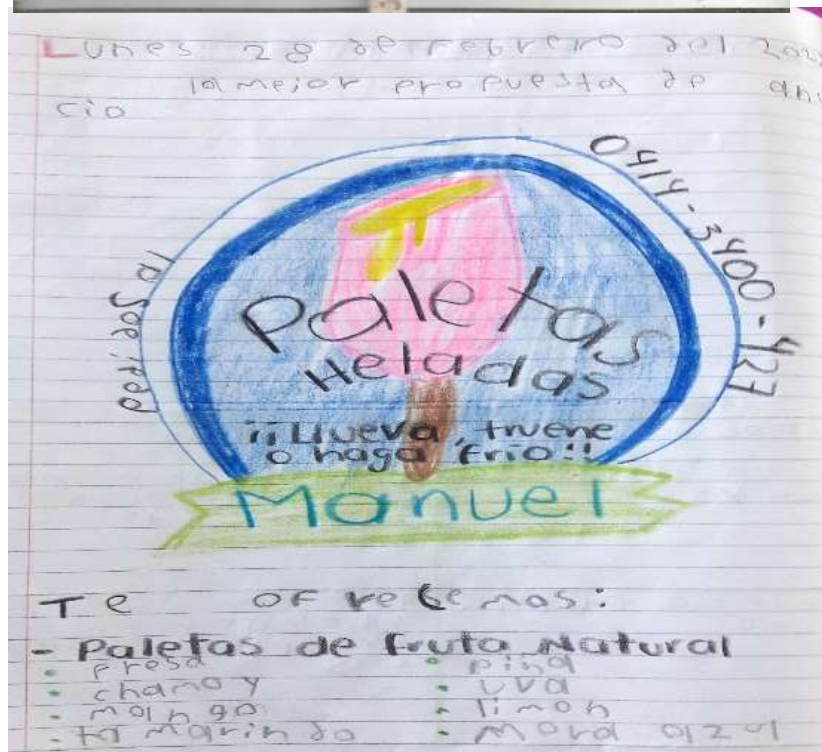 Lunes 28 de Febrero del 202
la mejor propuesta de anu
cio
0414-3400-427
Paletas
Heladas
¡¡Llueva, truene
o haga frio!!
Manuel
Te ofrecemos:
- Paletas de fruta Natural
• fresa • piña
• chamoy • uva
• mango • limon
• tamarindo • mora azul